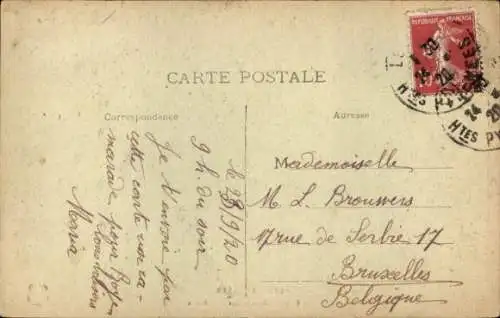 REPUBLIQUE FRANÇAISE
CARTE POSTALE
Correspondance
Adresse
le 23/9/20
9h. du soir
Je t'envoie par
cette carte une ca-
marade pour
Maria
Mademoiselle
M. L. Brouwers
17 rue de Serbie 17
Bruxelles
Belgique
Htes PY